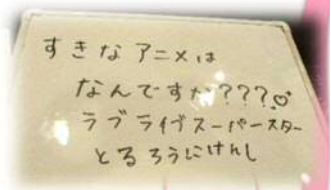 すきなアニメは
なんですか???♡
ラブライブスーパースター
とるろうにけんし